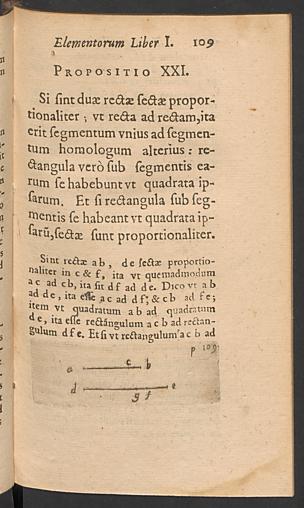 Elementorum Liber I. 109
PROPOSITIO XXI.
Si sint duæ rectæ sectæ propor-
tionaliter ; vt recta ad rectam, ita
erit segmentum vnius ad segmen-
tum homologum alterius : re-
ctangula verò sub segmentis ea-
rum se habebunt vt quadrata ip-
sarum. Et si rectangula sub seg-
mentis se habeant vt quadrata ip-
sarũ, sectæ sunt proportionaliter.
Sint rectæ a b, d e sectæ proportio-
naliter in c & f, ita vt quemadmodum
a c ad c b, ita sit d f ad d e. Dico vt a b
ad d e, ita esse a c ad d f; & c b ad f e;
item vt quadratum a b ad quadratum
d e, ita esse rectãngulum a c b ad rectan-
gulum d f e. Et si vt rectangulum a c b ad
p 109
a c b
d e
g f